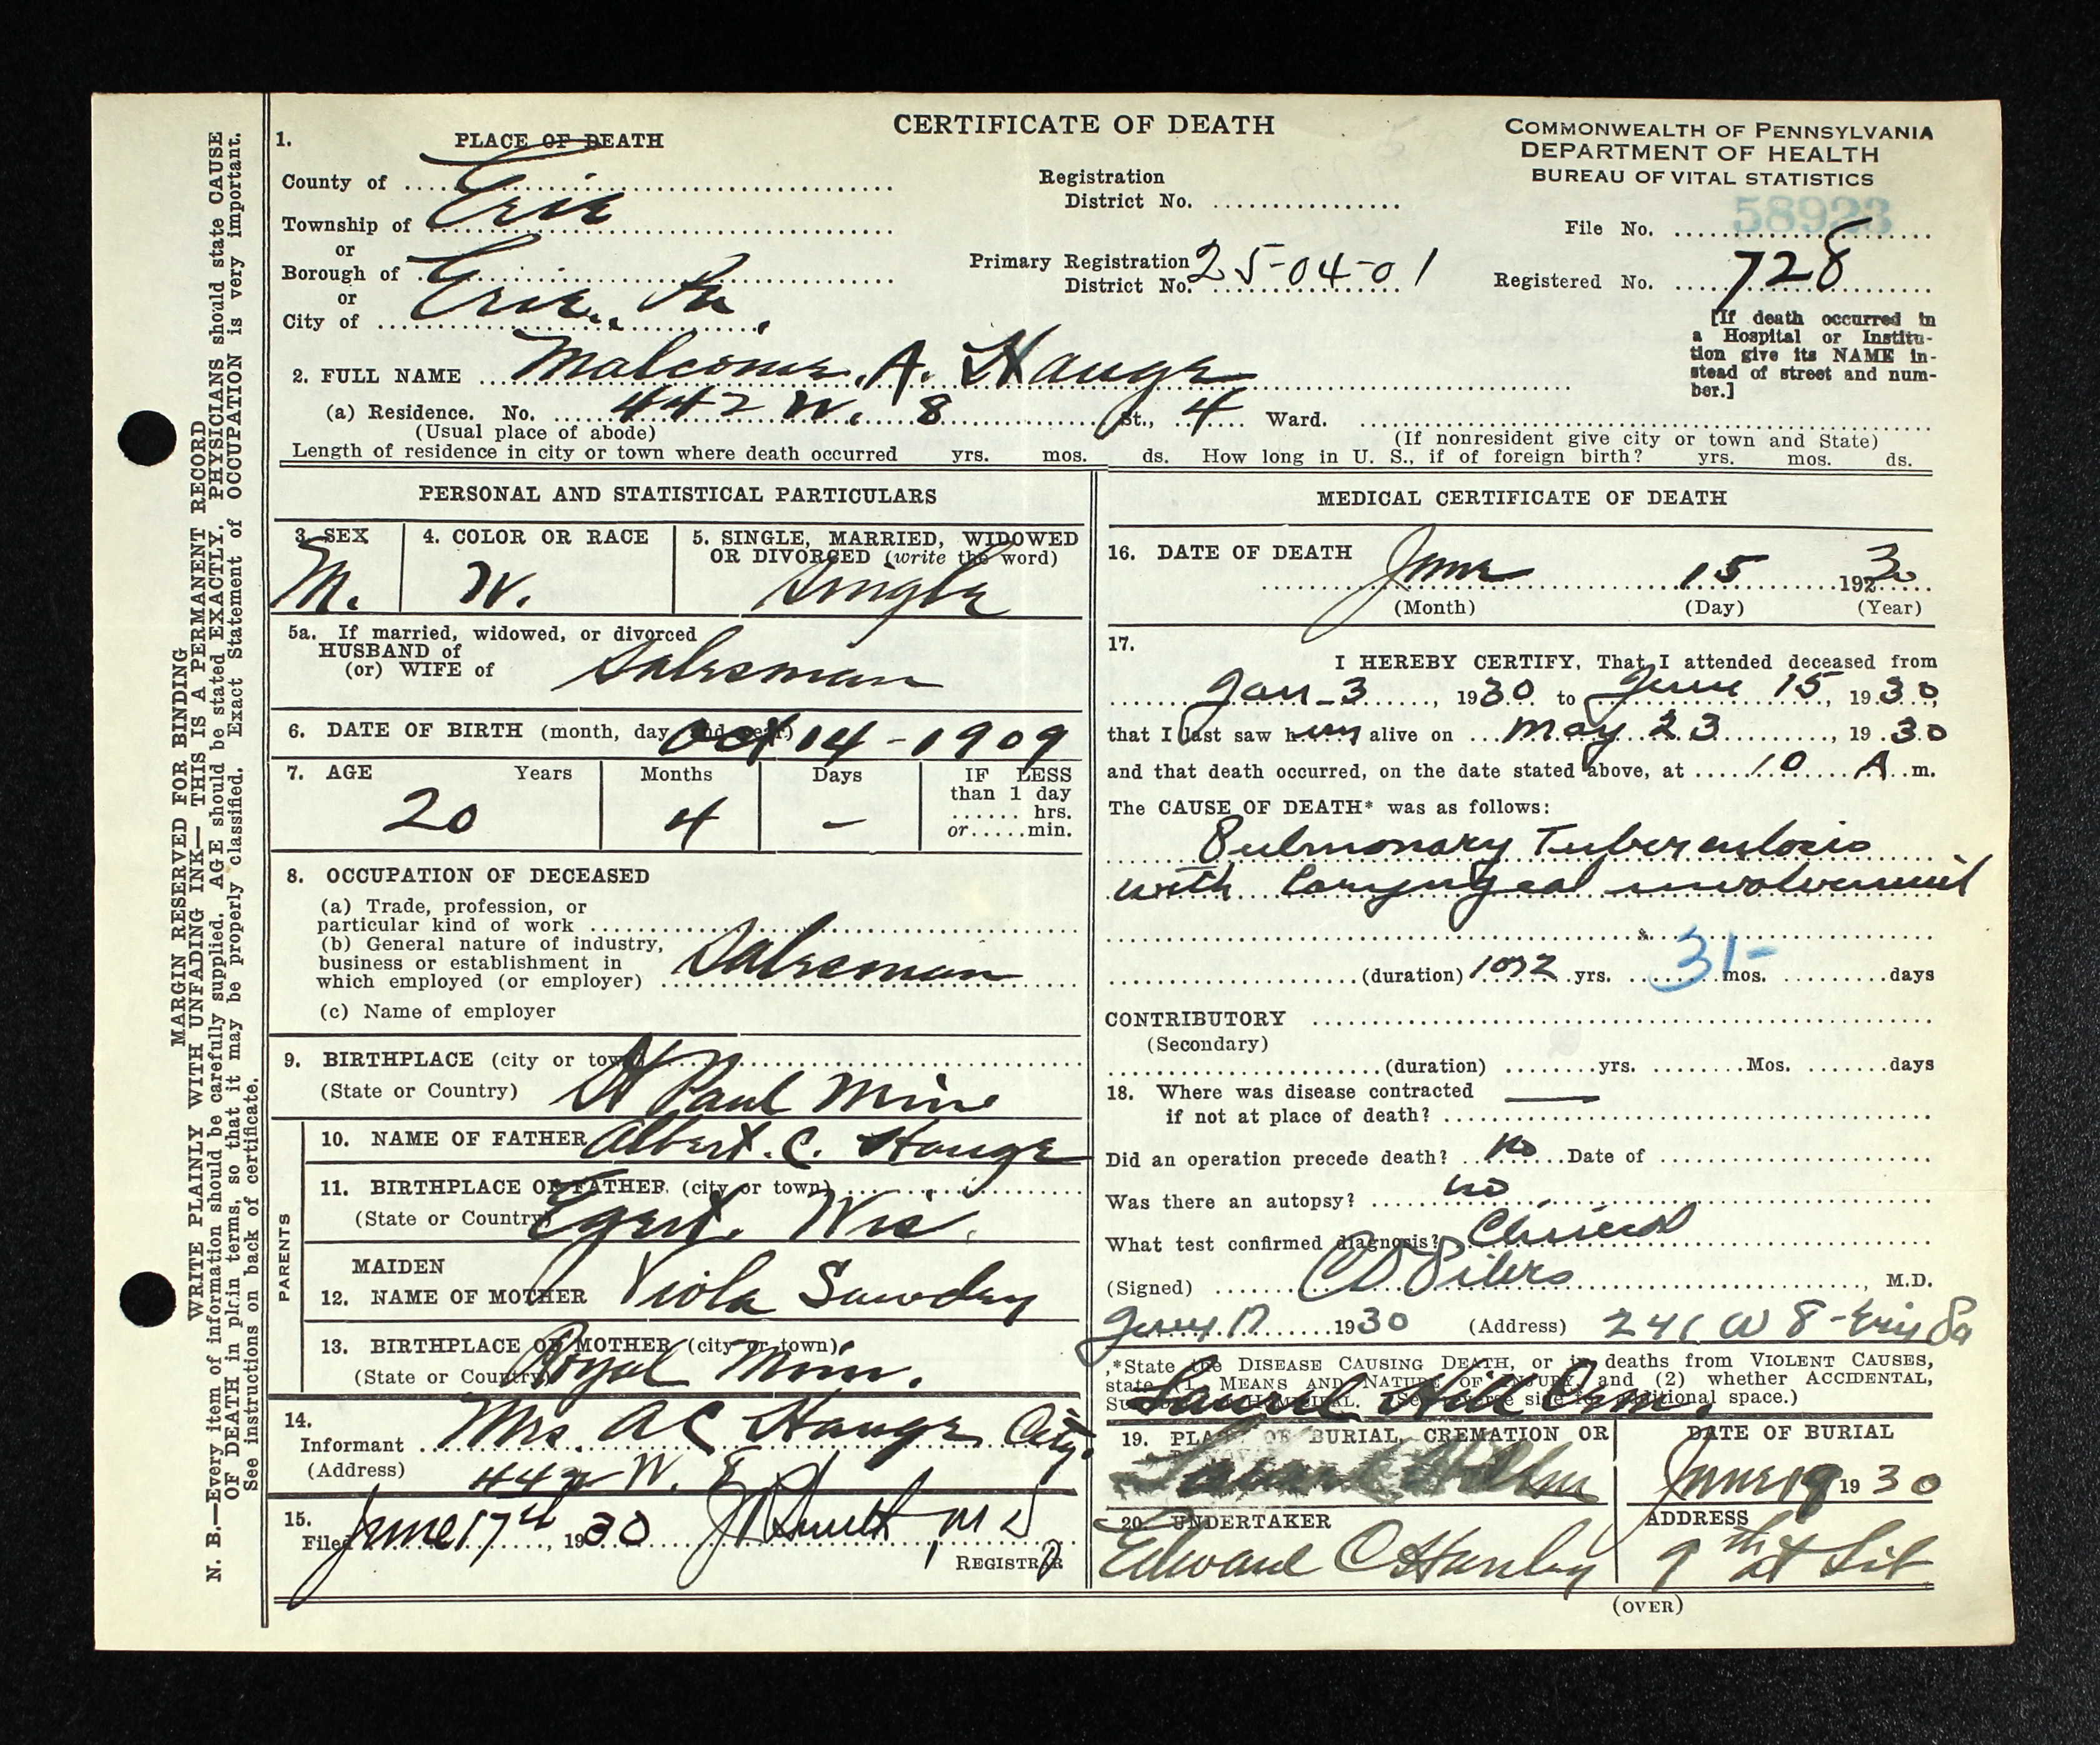 CERTIFICATE OF DEATH
COMMONWEALTH OF PENNSYLVANIA
DEPARTMENT OF HEALTH
BUREAU OF VITAL STATISTICS
1. PLACE OF DEATH
County of Erie
Township of
or
Borough of
or
City of Erie, Pa.
Registration
District No.
Primary Registration
District No. 25-04-01
File No. 58933
Registered No. 728
[If death occurred in
a Hospital or Institu-
tion give its NAME in-
stead of street and num-
ber.]
2. FULL NAME Malcome A. Hauge
(a) Residence. No. 442 W. 8 St., 4 Ward.
(Usual place of abode) (If nonresident give city or town and State)
Length of residence in city or town where death occurred yrs. mos. ds. How long in U. S., if of foreign birth? yrs. mos. ds.
PERSONAL AND STATISTICAL PARTICULARS
3. SEX
M.
4. COLOR OR RACE
W.
5. SINGLE, MARRIED, WIDOWED
OR DIVORCED (write the word)
Single
5a. If married, widowed, or divorced
HUSBAND of
(or) WIFE of Salesman
6. DATE OF BIRTH (month, day and year) Oct 14-1909
7. AGE Years Months Days IF LESS
than 1 day
hrs.
or min.
20 4 –
8. OCCUPATION OF DECEASED
(a) Trade, profession, or
particular kind of work
(b) General nature of industry,
business or establishment in
which employed (or employer) Salesman
(c) Name of employer
9. BIRTHPLACE (city or town)
(State or Country) St Paul Minn
PARENTS
10. NAME OF FATHER Albert. C. Hauge
11. BIRTHPLACE OF FATHER (city or town)
(State or Country) Wis.
MAIDEN
12. NAME OF MOTHER Viola
13. BIRTHPLACE OF MOTHER (city or town)
(State or Country) Royal Minn.
14.
Informant Mrs. A C Hauge City.
(Address) 442 W. 8
15.
Filed June 17th, 1930 M D
REGISTRAR
MEDICAL CERTIFICATE OF DEATH
16. DATE OF DEATH June 15 1930
(Month) (Day) (Year)
17.
I HEREBY CERTIFY, That I attended deceased from
Jan-3, 1930 to June 15, 1930,
that I last saw him alive on May 23, 1930
and that death occurred, on the date stated above, at 10 A m.
The CAUSE OF DEATH* was as follows:
Pulmonary Tuberculosis
with laryngeal involvement
31-
(duration) 1 or 2 yrs. mos. days
CONTRIBUTORY
(Secondary)
(duration) yrs. Mos. days
18. Where was disease contracted
if not at place of death?
Did an operation precede death? no Date of
Was there an autopsy? no
What test confirmed diagnosis? Clinical
(Signed) , M.D.
June 1930 (Address) 241 W 8-Erie Pa
*State the DISEASE CAUSING DEATH, or in deaths from VIOLENT CAUSES,
state (1) MEANS AND NATURE OF INJURY, and (2) whether ACCIDENTAL,
SUICIDAL or HOMICIDAL. (See reverse side for additional space.)
Laurel Hill Cem.
19. PLACE OF BURIAL, CREMATION OR
Laurel Hill
DATE OF BURIAL
June 19 1930
20. UNDERTAKER
Edward C Hanley
ADDRESS
9th at
(OVER)
MARGIN RESERVED FOR BINDING
WRITE PLAINLY WITH UNFADING INK—THIS IS A PERMANENT RECORD
N. B.—Every item of information should be carefully supplied. AGE should be stated EXACTLY. PHYSICIANS should state CAUSE
OF DEATH in plain terms, so that it may be properly classified. Exact Statement of OCCUPATION is very important.
See instructions on back of certificate.